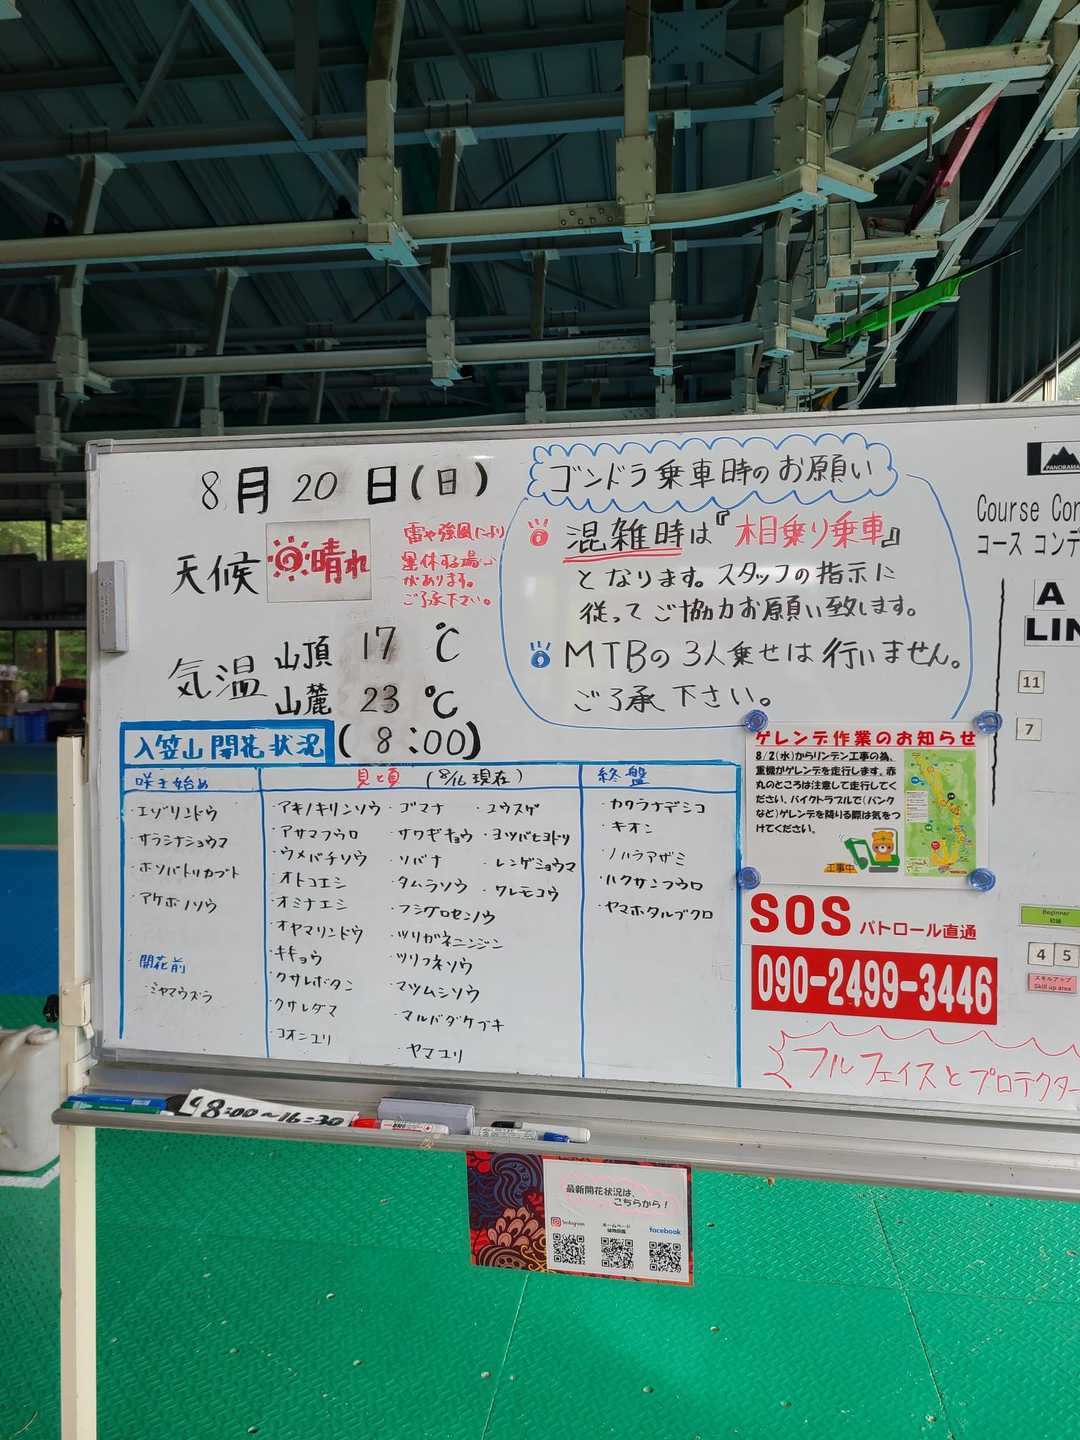 8月20日(日)
天候 晴れ
雷や強風により
運休する場合
があります。
ご了承下さい。
気温 山頂 17℃
山麓 23℃
(8:00)
ゴンドラ乗車時のお願い
混雑時は『相乗り乗車』
となります。スタッフの指示に
従ってご協力お願い致します。
MTBの3人乗せは行いません。
ご了承下さい。
入笠山開花状況
咲き始め
エゾリンドウ
サラシナショウマ
ホソバトリカブト
アケボノソウ
開花前
ミヤマウズラ
見頃 (8/16現在)
アキノキリンソウ
アサマフウロ
ウメバチソウ
オトコエシ
オミナエシ
オヤマリンドウ
キキョウ
クサレボタン
クサレダマ
コオニユリ
ゴマナ
サワギキョウ
ソバナ
タムラソウ
フシグロセンノウ
ツリガネニンジン
ツリフネソウ
マツムシソウ
マルバダケブキ
ヤマユリ
ユウスゲ
ヨツバヒヨドリ
レンゲショウマ
ワレモコウ
終盤
カワラナデシコ
キオン
ノハラアザミ
ハクサンフウロ
ヤマホタルブクロ
ゲレンデ作業のお知らせ
8/2(水)からリンデン工事の為、
重機がゲレンデを走行します。赤
丸のところは注意して走行してく
ださい。バイクトラブルで(パンク
など)ゲレンデを降りる際は気をつ
けてください。
工事中
SOS パトロール直通
090-2499-3446
フルフェイスとプロテクター
PANORAMA
Course Con
コース コンデ
A
LIN
11
7
Beginner
初級
4 5
スキルアップ
Skill up area
8:00~16:30
最新開花状況は、
こちらから!
Instagram
ホームページ
植物図鑑
facebook